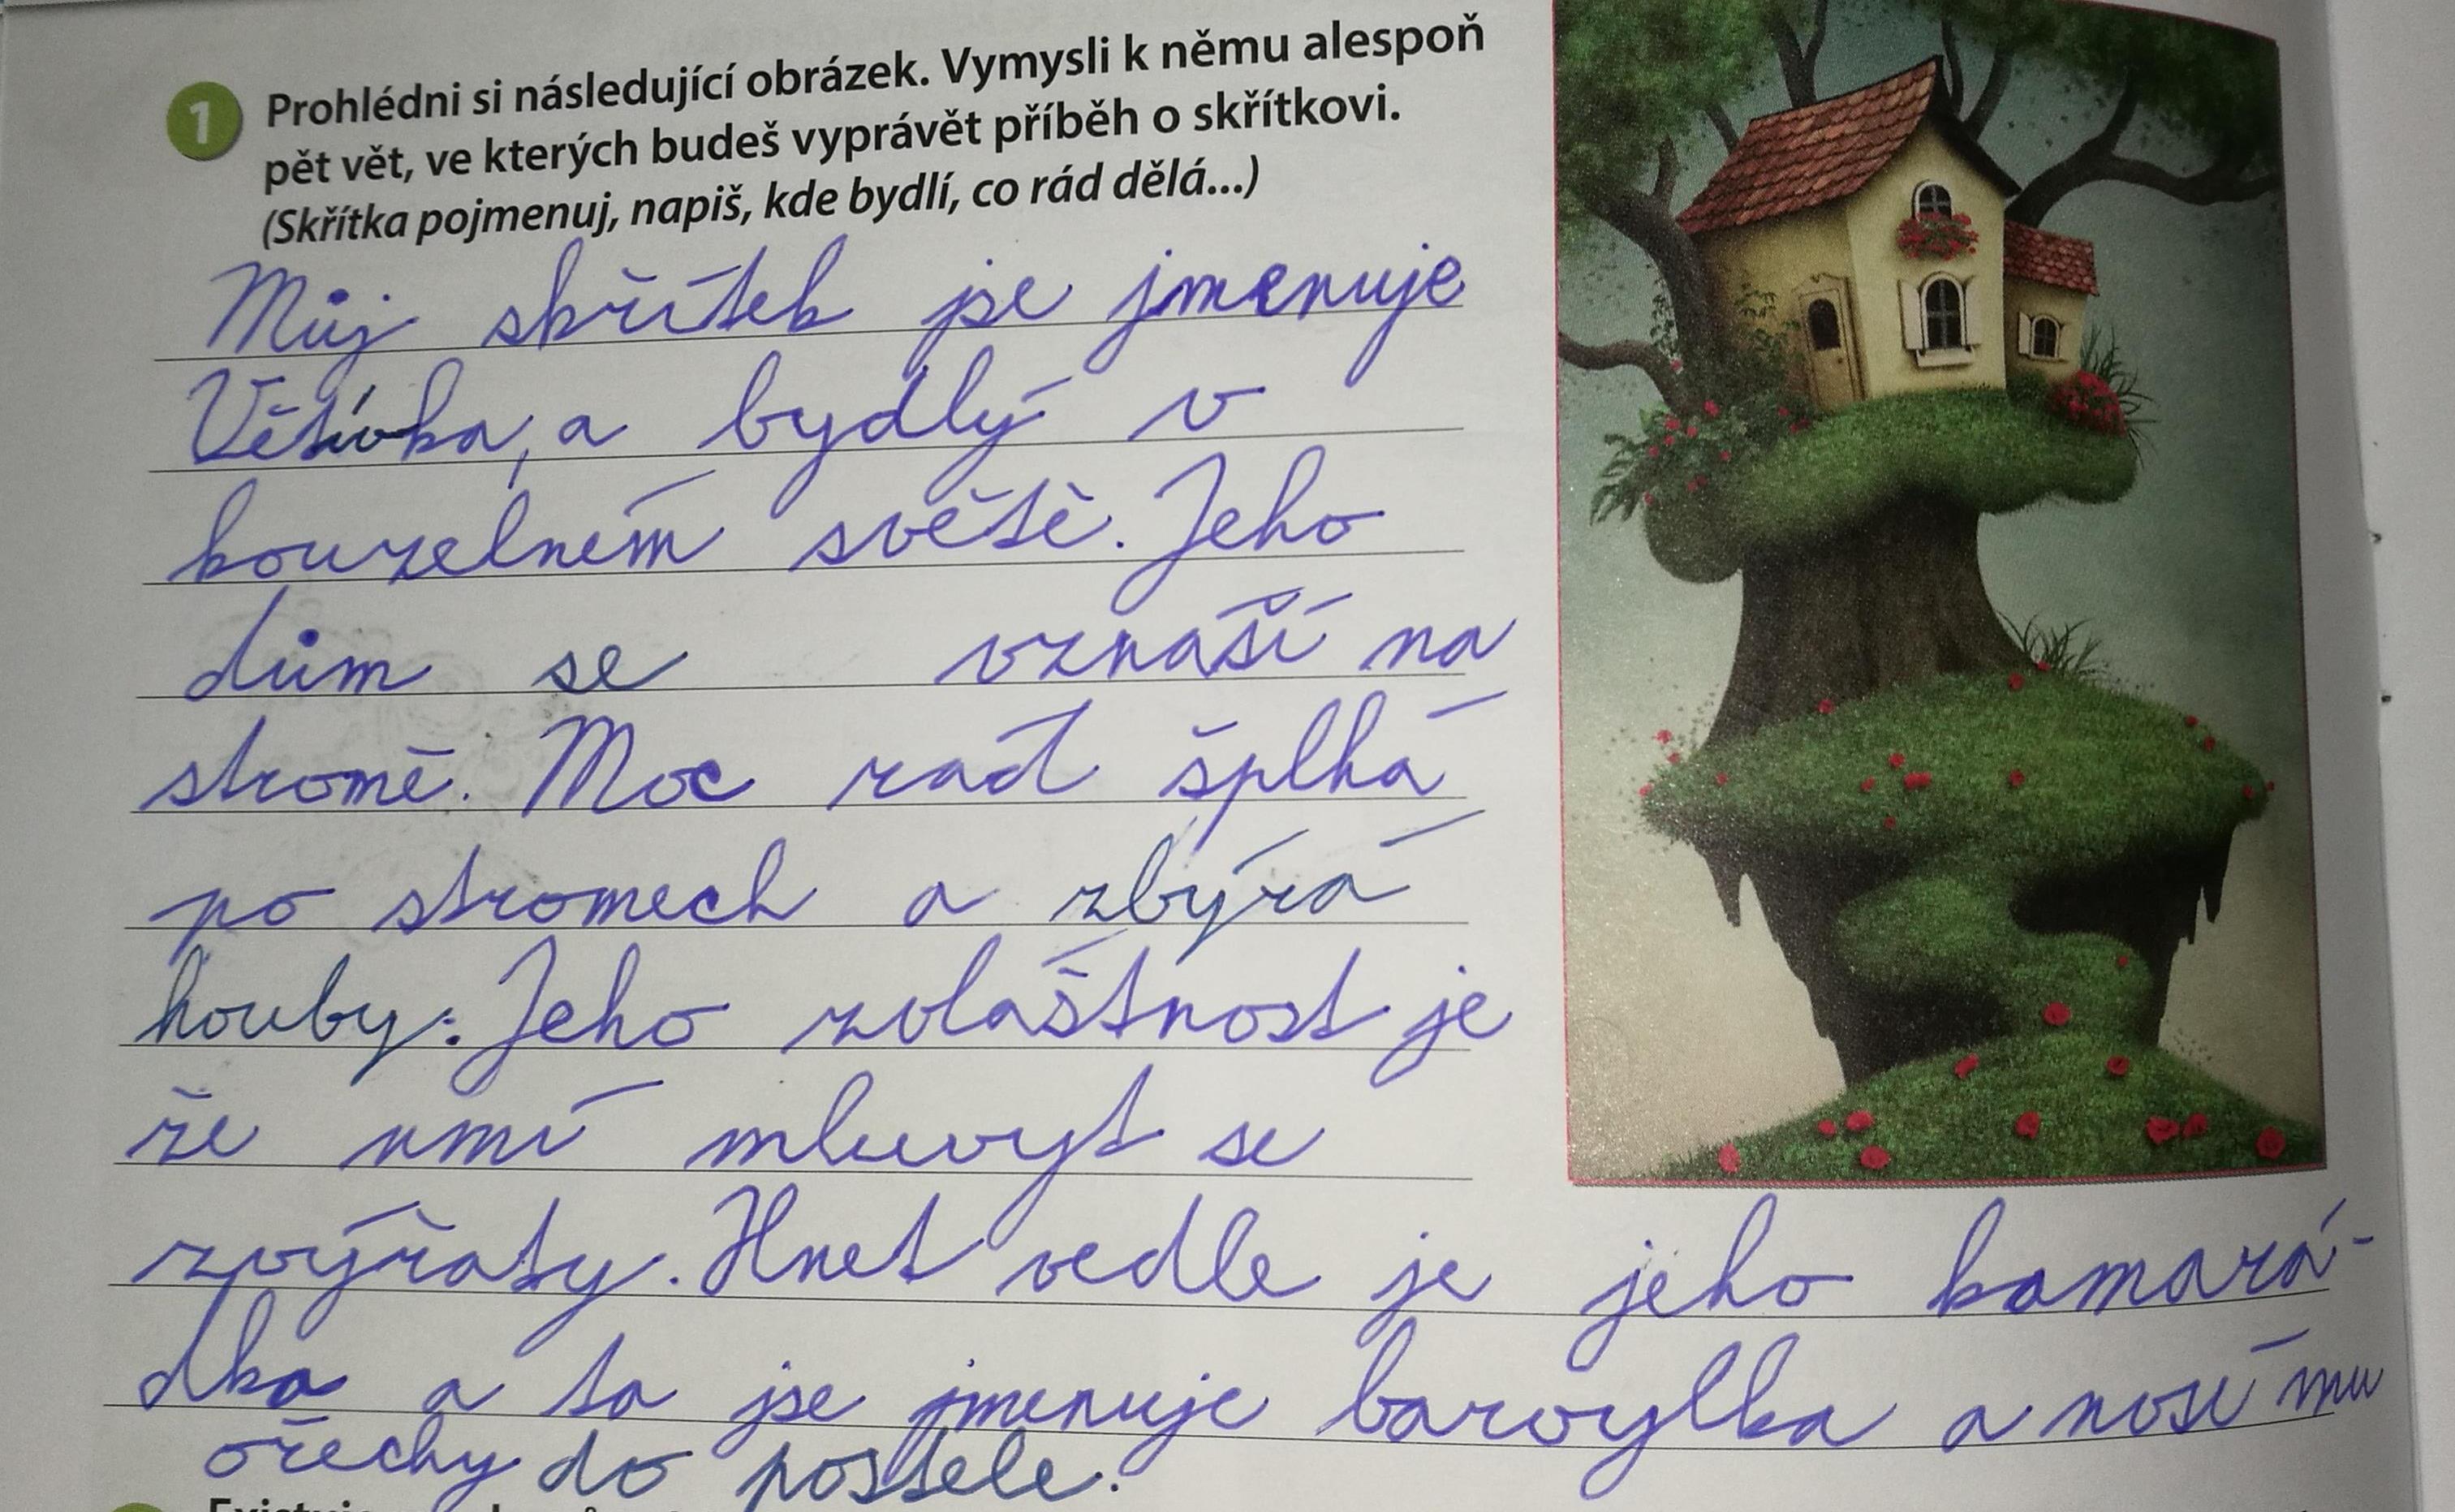 1 Prohlédni si následující obrázek. Vymysli k němu alespoň
pět vět, ve kterých budeš vyprávět příběh o skřítkovi.
(Skřítka pojmenuj, napiš, kde bydlí, co rád dělá...)
Můj skřítek jse jmenuje
Větívka, a bydlý v
kouzelném světě. Jeho
dům se vznáší na
stromě. Moc rád šplhá
po stromech a zbýrá
houby. Jeho zvláštnost je
že umí mluvyt se
zvýřaty. Hnet vedle je jeho kamará-
dka a ta jse jmenuje barvylka a nosí mu
ořechy do postele.